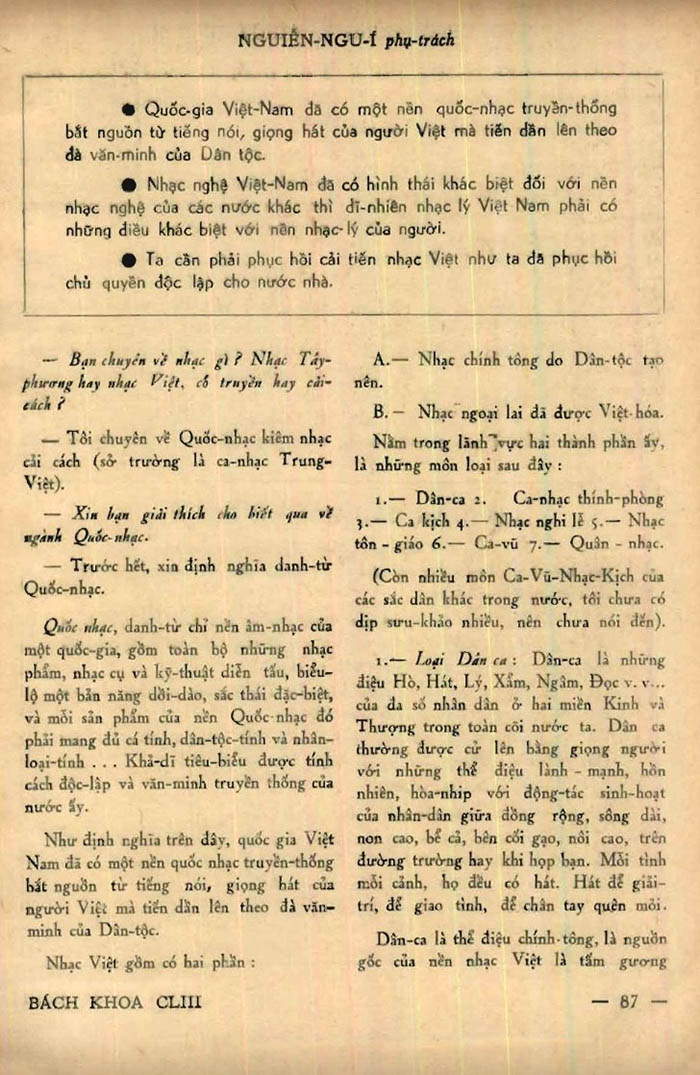 NGUIỄN-NGU-Í phụ-trách
● Quốc-gia Việt-Nam đã có một nền quốc-nhạc truyền-thống
bắt nguồn từ tiếng nói, giọng hát của người Việt mà tiến dần lên theo
đà văn-minh của Dân tộc.
● Nhạc nghệ Việt-Nam đã có hình thái khác biệt đối với nền
nhạc nghệ của các nước khác thì dĩ-nhiên nhạc lý Việt Nam phải có
những điều khác biệt với nền nhạc-lý của người.
● Ta cần phải phục hồi cải tiến nhạc Việt như ta đã phục hồi
chủ quyền độc lập cho nước nhà.
— Bạn chuyên về nhạc gì ? Nhạc Tây-
phương hay nhạc Việt, cổ truyền hay cải-
cách ?
— Tôi chuyên về Quốc-nhạc kiêm nhạc
cải cách (sở trường là ca-nhạc Trung-
Việt).
— Xin bạn giải thích cho biết qua về
ngành Quốc-nhạc.
— Trước hết, xin định nghĩa danh-từ
Quốc-nhạc.
Quốc nhạc, danh-từ chỉ nền âm-nhạc của
một quốc-gia, gồm toàn bộ những nhạc
phẩm, nhạc cụ và kỹ-thuật diễn tấu, biểu-
lộ một bản năng dồi-dào, sắc thái đặc-biệt,
và mỗi sản phẩm của nền Quốc-nhạc đó
phải mang đủ cá tính, dân-tộc-tính và nhân-
loại-tính . . . Khả-dĩ tiêu-biểu được tính
cách độc-lập và văn-minh truyền thống của
nước ấy.
Như định nghĩa trên đây, quốc gia Việt
Nam đã có một nền quốc nhạc truyền-thống
bắt nguồn từ tiếng nói, giọng hát của
người Việt mà tiến dần lên theo đà văn-
minh của Dân-tộc.
Nhạc Việt gồm có hai phần :
A.— Nhạc chính tông do Dân-tộc tạo
nên.
B.— Nhạc ngoại lai đã được Việt-hóa.
Nằm trong lãnh vực hai thành phần ấy,
là những môn loại sau đây :
1.— Dân-ca 2. Ca-nhạc thính-phòng
3.— Ca kịch 4.— Nhạc nghi lễ 5.— Nhạc
tôn - giáo 6.— Ca-vũ 7.— Quân - nhạc.
(Còn nhiều môn Ca-Vũ-Nhạc-Kịch của
các sắc dân khác trong nước, tôi chưa có
dịp sưu-khảo nhiều, nên chưa nói đến).
1.— Loại Dân ca : Dân-ca là những
điệu Hò, Hát, Lý, Xẩm, Ngâm, Đọc v. v...
của đa số nhân dân ở hai miền Kinh và
Thượng trong toàn cõi nước ta. Dân ca
thường được cử lên bằng giọng người
với những thể điệu lành - mạnh, hồn
nhiên, hòa-nhịp với động-tác sinh-hoạt
của nhân-dân giữa đồng rộng, sông dài,
non cao, bể cả, bên cối gạo, nôi cao, trên
đường trường hay khi họp bạn. Mỗi tình
mỗi cảnh, họ đều có hát. Hát để giải-
trí, để giao tình, để chân tay quên mỏi.
Dân-ca là thể điệu chính-tông, là nguồn
gốc của nền nhạc Việt là tấm gương
BÁCH KHOA CLIII
— 87 —